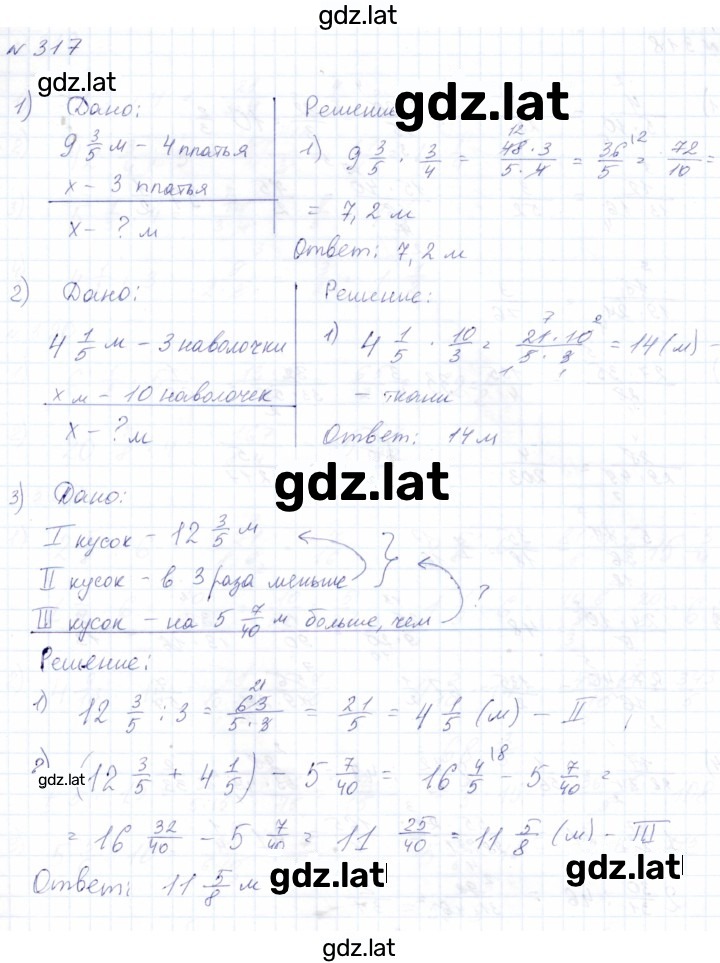 gdz.lat
№ 317
gdz.lat
1) Дано:
9 3/5 м – 4 платья
х – 3 платья
х – ? м
Решение
gdz.lat
1) 9 3/5 · 3/4 = 48·3/5·4 = 36/5 = 72/10 =
= 7,2 м
Ответ: 7,2 м
2) Дано:
4 1/5 м – 3 наволочки
х м – 10 наволочек
х – ? м
Решение:
1) 4 1/5 · 10/3 = 21·10/5·3 = 14 (м) –
– ткани
Ответ: 14 м
gdz.lat
3) Дано:
I кусок – 12 3/5 м
II кусок – в 3 раза меньше
III кусок – на 5 7/40 м больше, чем ?
Решение:
1) 12 3/5 : 3 = 63/5·3 = 21/5 = 4 1/5 (м) – II
2) (12 3/5 + 4 1/5) – 5 7/40 = 16 4/5 – 5 7/40 =
gdz.lat
= 16 32/40 – 5 7/40 = 11 25/40 = 11 5/8 (м) – III
Ответ: 11 5/8 м
gdz.lat
gdz.lat
gdz.lat